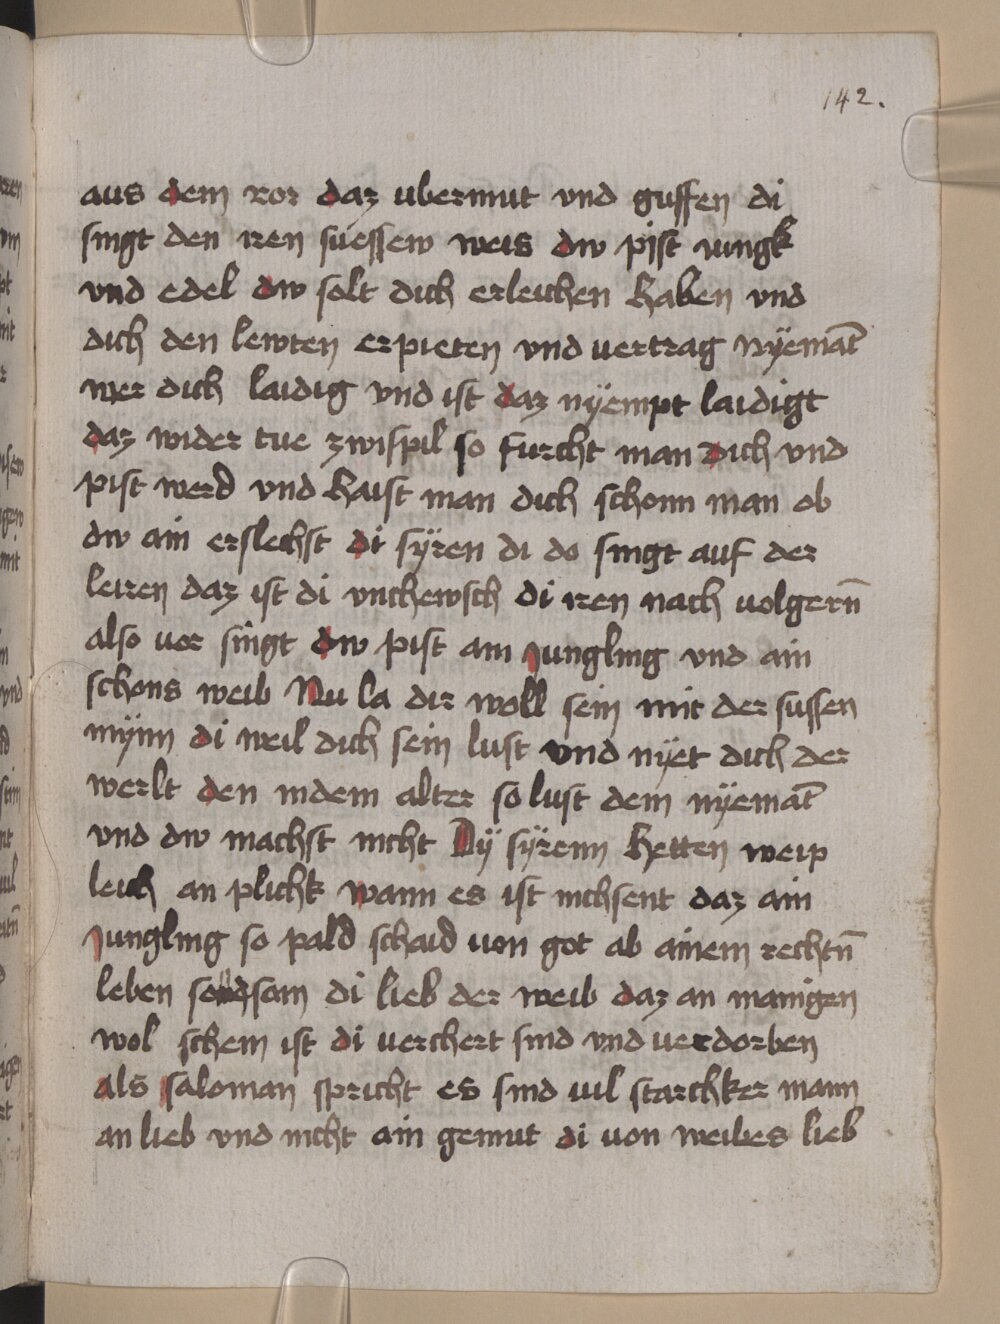 142.
aus dem ror daz ubermut vnd guffen di
singt den iren suessew weis dw pist iungk
vnd edel dw solt dich erleichen haben vnd
dich den lewten erpieten vnd vertrag nÿemāt
wer dich laidig vnd ist daz nÿempt laidigt
daz wider tue zwispil so furcht man dich vnd
pist werd vnd haist man dich schonn man ob
dw ain erslechst di sÿren di do singt auf der
leiren daz ist di vnchewsch di iren nach volgerñ
also vor singt dw pist ain jungling vnd ain
schons weib Nu la dir woll sein mit der sussen
mÿnn di weil dich sein lust vnd nÿet dich der
werlt den indem alter so lust dein nÿemāt
vnd dw machst nicht Dÿ sÿrenn hetten weip
leich an plichk wann es ist nichsent daz ain
jungling so pald schaid von got ab ainem rechtñ
leben sam di lieb der weib daz an manigen
wol schein ist di verchert sind vnd verdorben
als saloman spricht es sind vil starchker mann
an lieb vnd nicht ain gemut di von weibes lieb